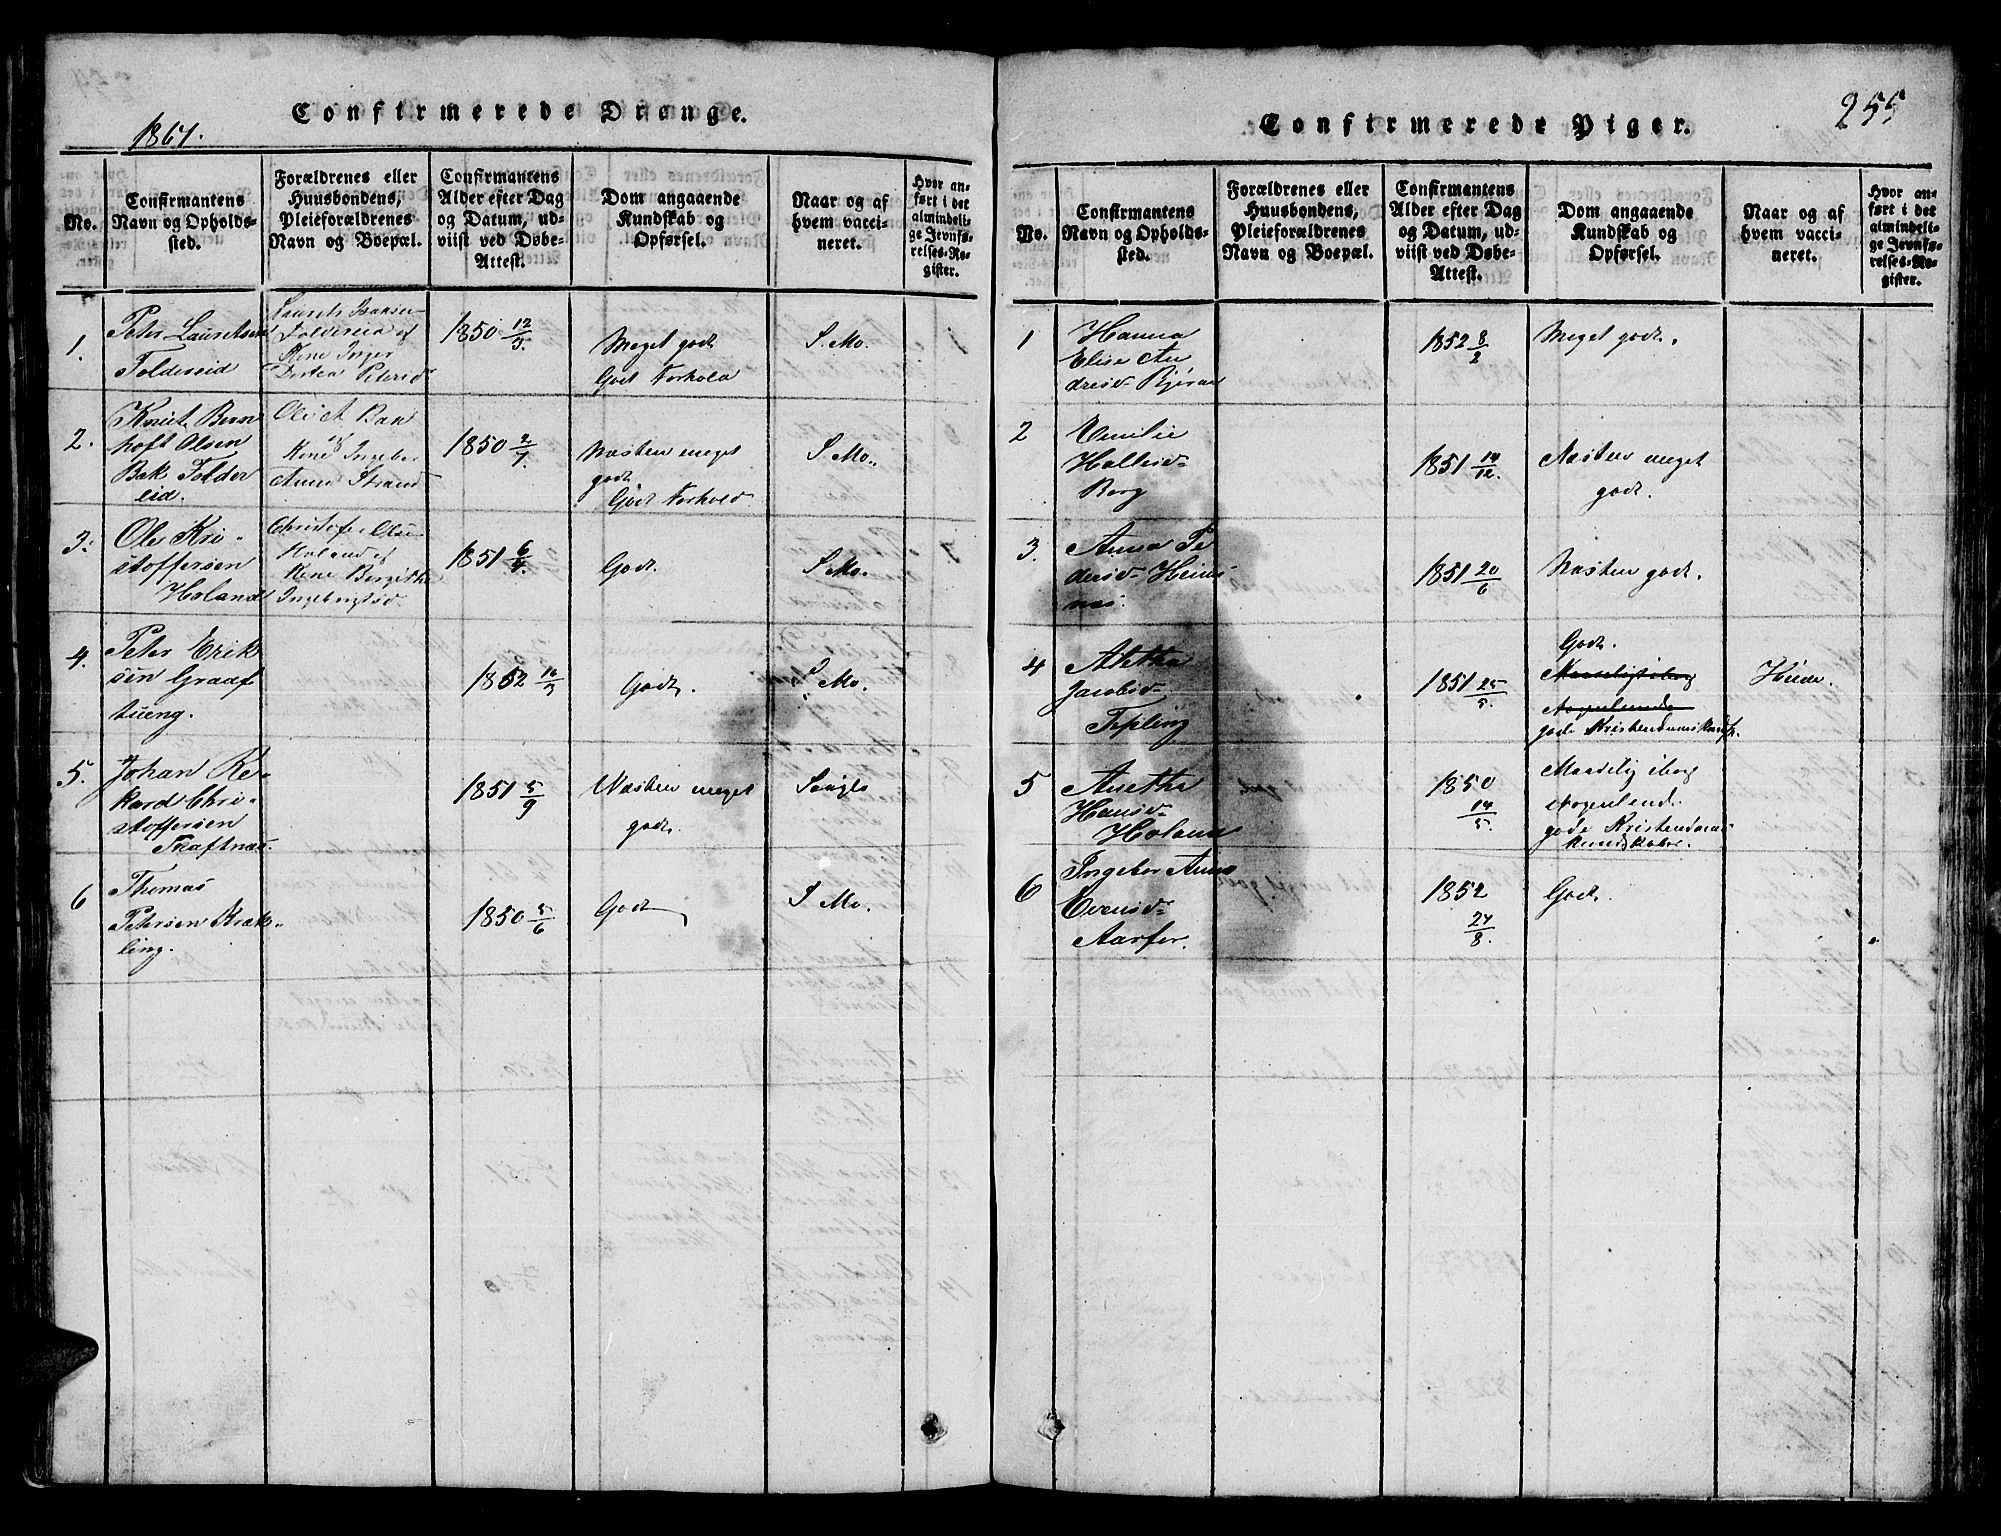 Confirmerede Drenge.
1867.
No.
Confirmantens
Navn og Opholds-
sted.
Forældrenes eller
Huusbondens,
Pleieforældrenes
Navn og Boepæl.
Confirmantens
Alder efter Dag
og Datum, ud-
viist ved Døbe-
Attest.
Dom angaaende
Kundskab og
Opførsel.
Naar og af
hvem vacci-
neret.
Hvor an-
ført i det
almindeli-
ge Jevnfø-
relses-Re-
gister.
1.
Peter Lauritsen
Toldereid
Laurits
Toldereid af
Kone Inger
1850 12/3.
Meget godt
Godt Forhold
S. Mo.
2.
Knut Bern
hoft Olsen
Bak Tolder
eid.
Ole A Bak
Kone Ingebor
Anna Strand
1850 2/7.
Næsten meget
godt
Godt Forhold
S. Mo.
3.
Ole Kri-
stoffersen
Holand
Christofer Olsen
Holand af
Kone Bergitha
Ingebrigtsd.
1851 6/4.
Godt.
S. Mo.
4.
Peter Erik
sen Graaf
tueng.
1852 16/3
Godt.
S. Mo.
5.
Johan Re-
kard Chri-
stoffersen
1851 5/9
Næsten meget
godt.
6
Thomas
Petersen Kræk-
ling.
1850 5/6
Godt
S. Mo.
255
Confirmerede Piger.
No.
Confirmantens
Navn og Opholds-
sted.
Forældrenes eller
Huusbondens,
Pleieforældrenes
Navn og Boepæl.
Confirmantens
Alder efter Dag
og Datum, ud-
viist ved Døbe-
Attest.
Dom angaaende
Kundskab og
Opførsel.
Naar og af
hvem vacci-
neret.
Hvor an-
ført i det
almindeli-
ge Jevnfø-
relses-Re-
gister.
1
Hanna
Elise An
dresd.
1852 8/2
Meget godt.
2
Emilie
Berg
1851 14/12.
Næsten meget
godt.
3.
Anna Pe
dersd.
1851 20/6
Næsten godt.
4
Jacobsd.
Tepling
1851 25/5.
Godt.
gode
5
Anetha
Hansd.
Holand
1850
14/5.
Maadelig iborg
gode Kristendoms
kundskaber.
6
Ingebor Anna
Evensd.
Aarfor.
1852
27/8.
Godt.